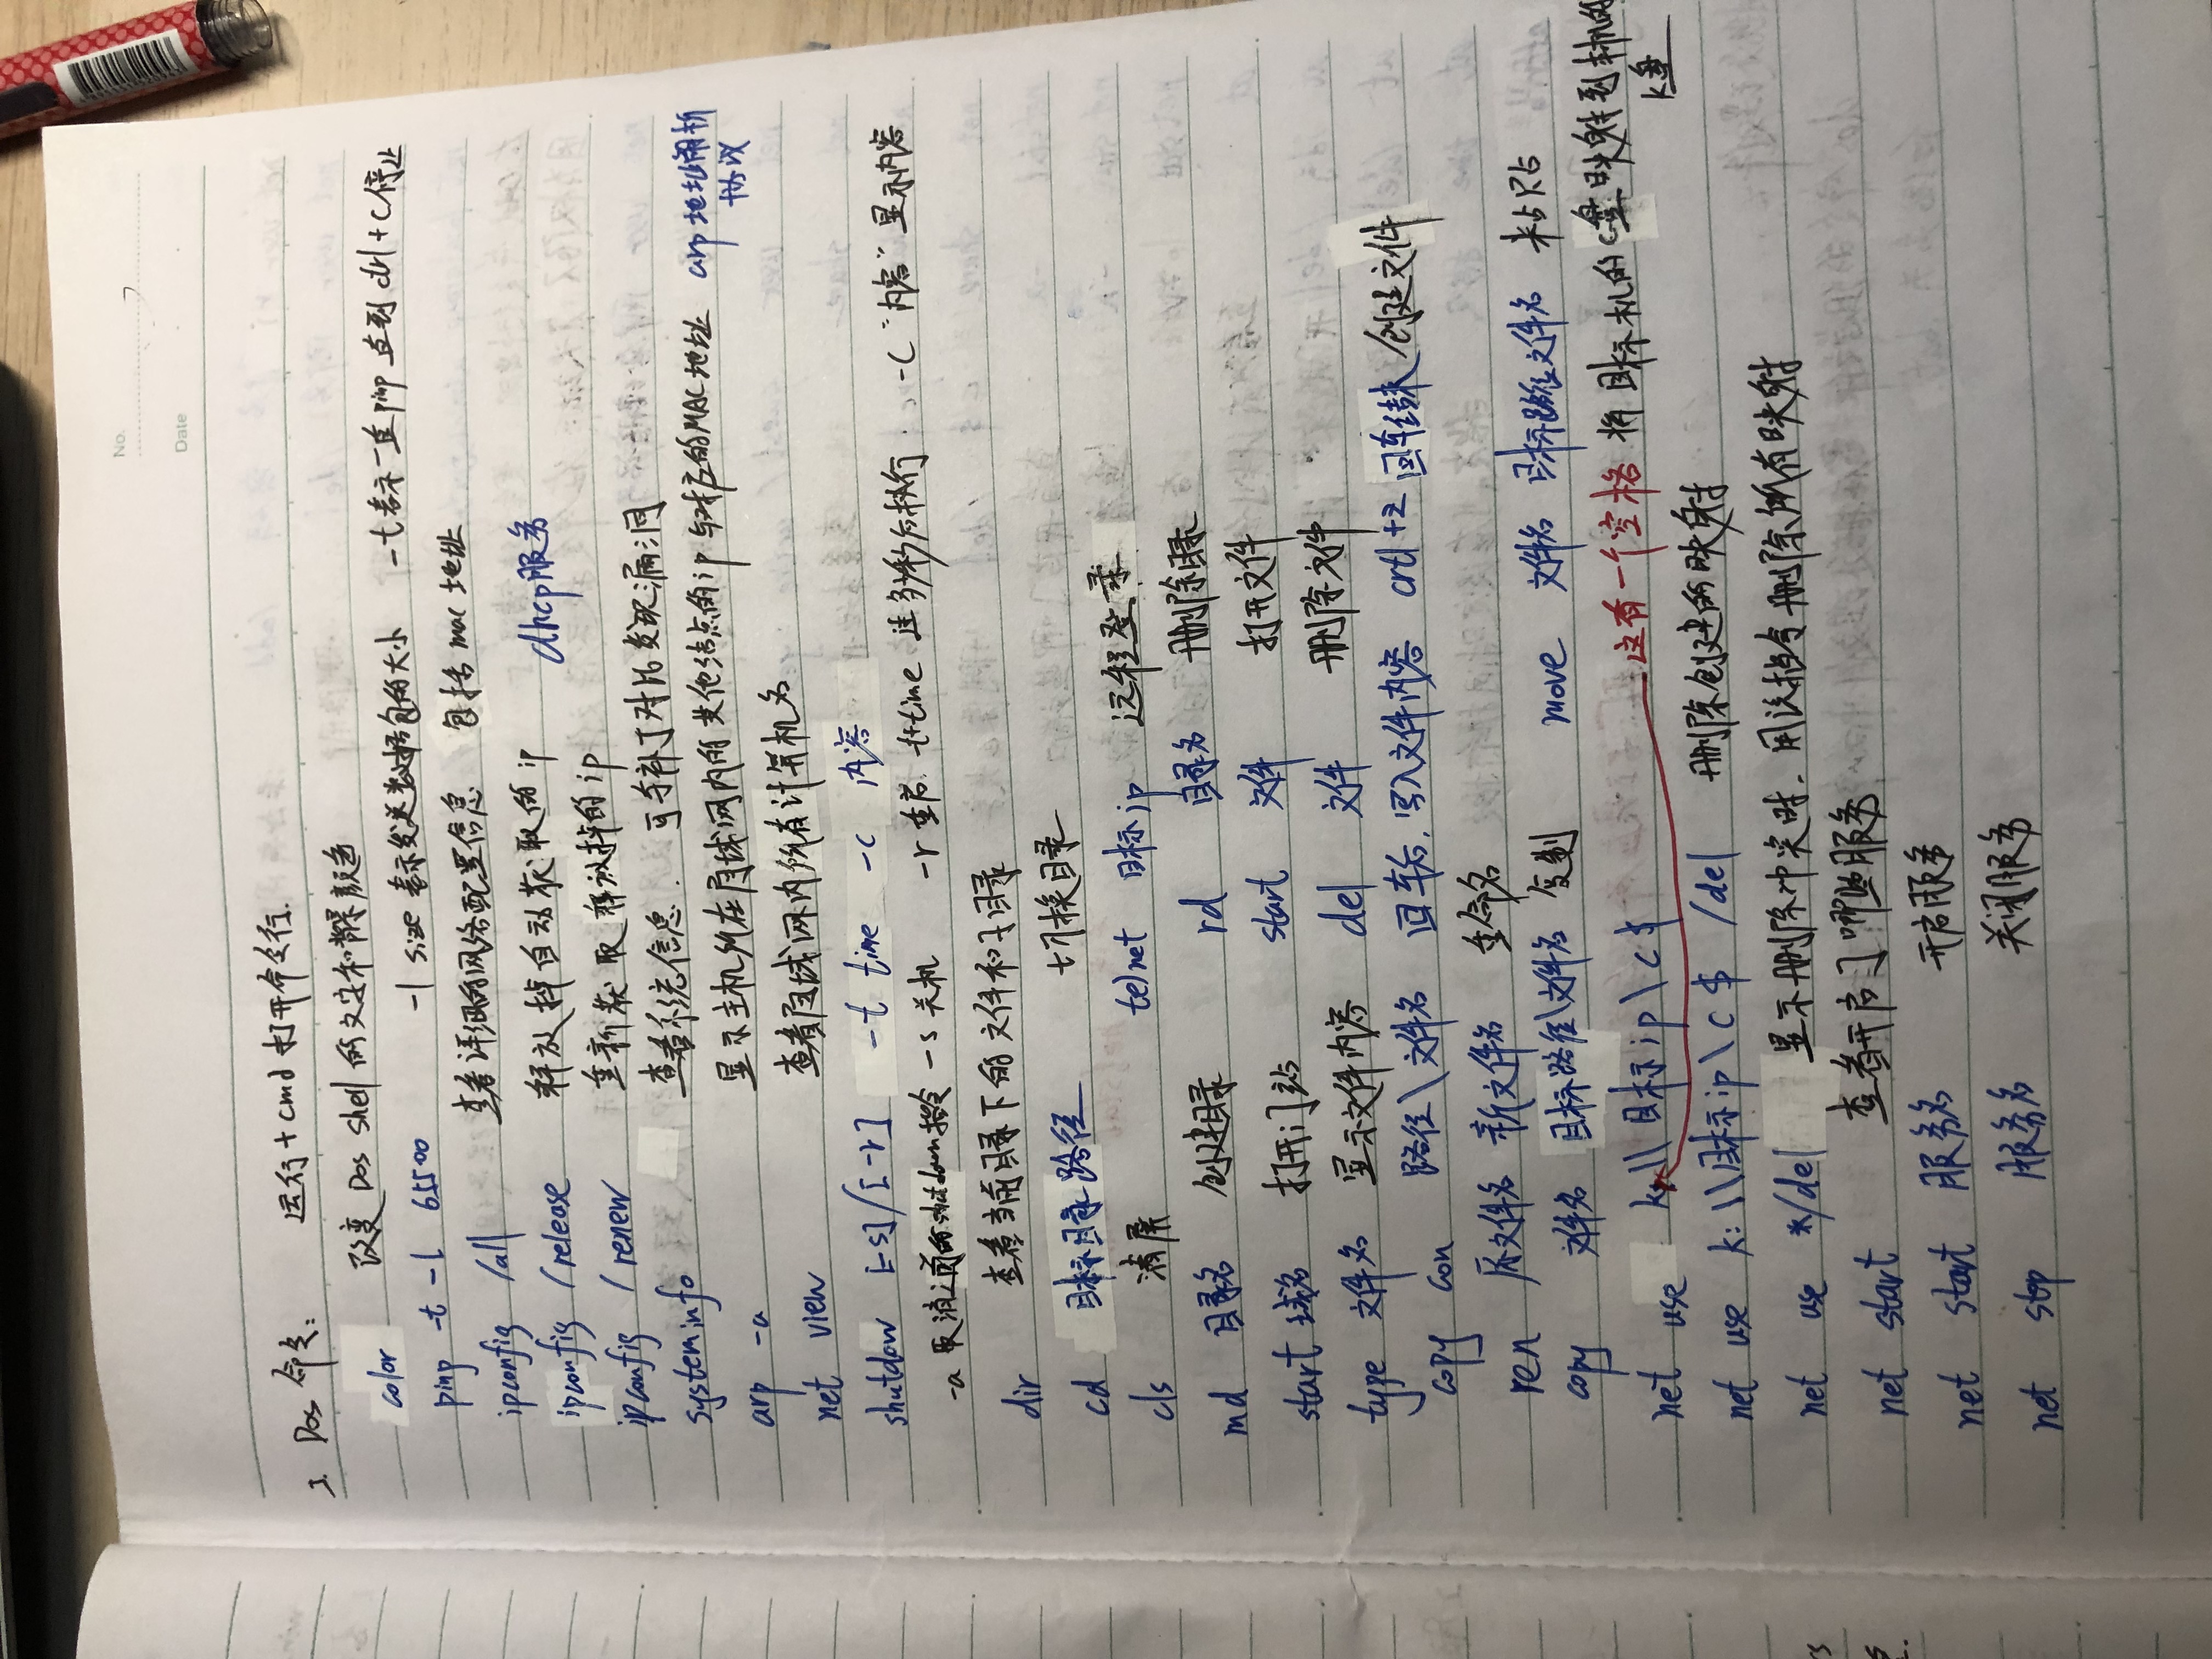 No.
Date
3. Dos 命令: 运行+cmd 打开命令行.
color 改变 Dos shell 的文字和背景颜色
ping -t -l 65500 -l size 表示发送数据包的大小 -t 表示一直ping 直到 ctrl+C停止
ipconfig /all 查看详细的网络配置信息 包括 mac 地址
ipconfig /release 释放掉自动获取的 ip dhcp服务
ipconfig /renew 重新获取释放掉的 ip
systeminfo 查看系统信息. 可与补丁对比发现漏洞
arp -a 显示主机所在局域网内的其他结点的ip与对应的MAC地址 arp地址解析协议
net view 查看局域网内所有计算机名
shutdown [-s]/[-r] -t time -c 内容
-a 取消之前的shutdown指令 -s 关机 -r 重启 t+time 连多少秒后执行 -C "内容" 显示内容
dir 查看当前目录下的文件和子目录
cd 目标目录路径 切换目录
cls 清屏 telnet 目标ip 远程登录
md 目录名 创建目录 rd 目录名 删除目录
start 域名 打开门站 start 文件 打开文件
type 文件名 显示文件内容 del 文件 删除文件
copy con 路径\文件名 回车后, 写入文件内容 crtl +z 回车结束 创建文件
ren 原文件名 新文件名 重命名
copy 文件名 目标路径\文件名 复制 move 文件名 目标路径文件名 粘贴
net use k: \\目标ip\c$ 这有一个空格 将目标机的C盘映射到本机的K盘
net use k: \\目标ip\C$ /del 删除创建的映射
net use */del 显示删除冲突时. 用该指令删除所有映射
net start 查看开启了哪些服务
net start 服务名 开启服务
net stop 服务名 关闭服务